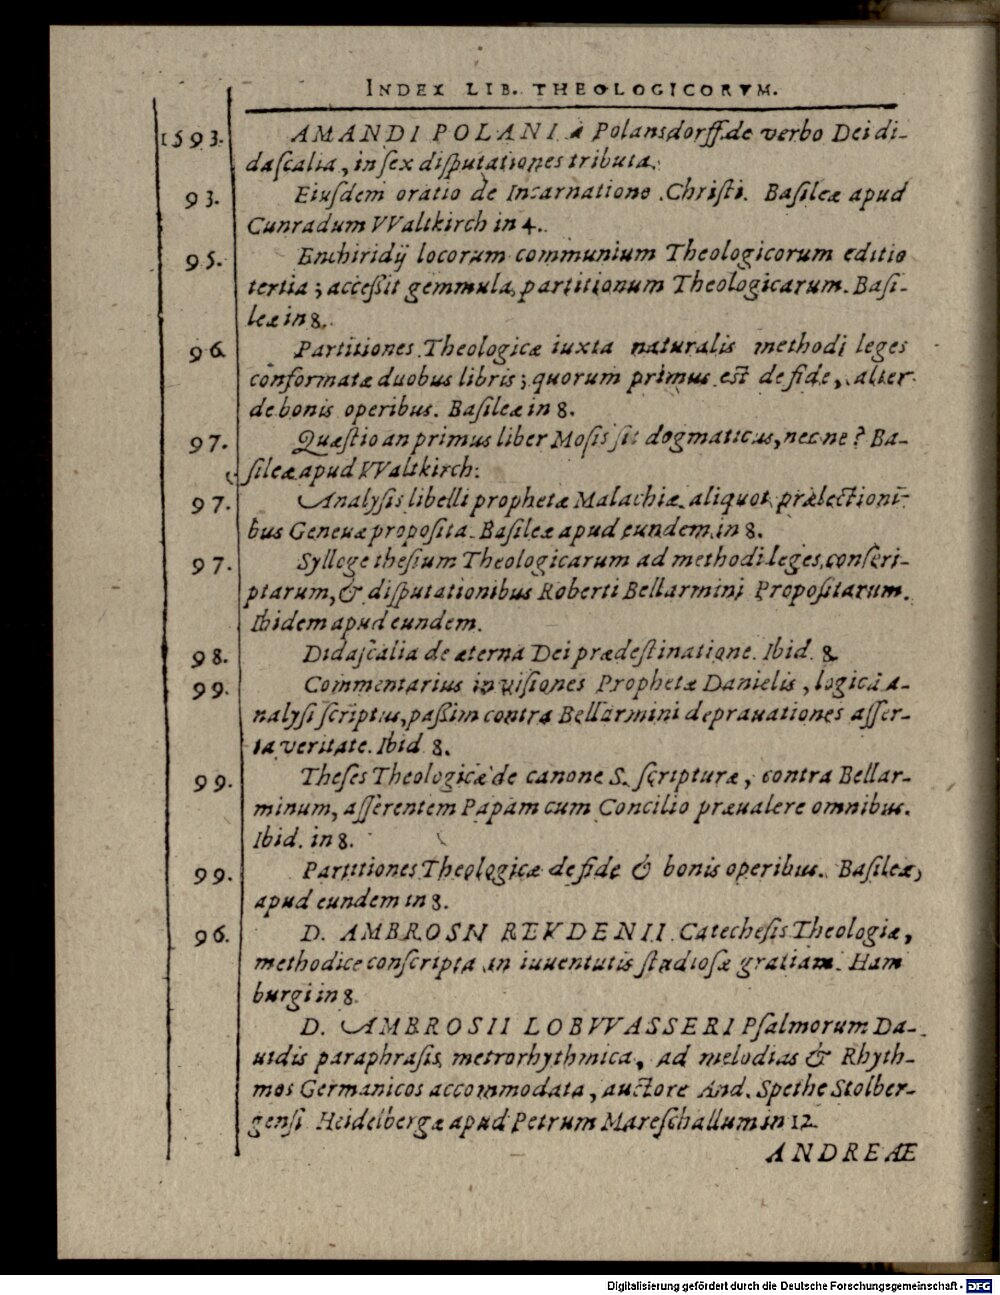 INDEX LIB. THEOLOGICORVM.
1593. AMANDI POLANI à Polansdorff.de verbo Dei di-
daſcalia, in ſex diſputationes tributa.
93. Eiuſdem oratio de Incarnatione Chriſti. Baſileæ apud
Cunradum VValtkirch in 4.
95. Enchiridij locorum communium Theologicorum editio
tertia; acceßit gemmula, partitionum Theologicarum. Baſi-
leæ in 8.
96. Partitiones Theologicæ iuxta naturalis methodi leges
conformatæ duobus libris; quorum primus est de fide, alter
de bonis operibus. Baſileæ in 8.
97. Quæſtio an primus liber Moſis ſit dogmaticus, nec ne? Ba-
ſileæ apud VValtkirch:
97. Analyſis libelli prophetæ Malachiæ aliquot prælectioni-
bus Geneuæ propoſita. Baſileæ apud eundem in 8.
97. Sylloge theſium Theologicarum ad methodi leges conſcri-
ptarum, & diſputationibus Roberti Bellarmini Propoſitarum.
Ibidem apud eundem.
98. Didaſcalia de æterna Dei prædeſtinatione. Ibid. 8.
99. Commentarius in viſiones Prophetæ Danielis, logicâ a-
nalyſi ſcriptus, paßim contra Bellarmini deprauationes aſſer-
ta veritate. Ibid. 8.
99. Theſes Theologicæ de canone S. ſcripturæ, contra Bellar-
minum, aſſerentem Papam cum Concilio præualere omnibus.
Ibid. in 8.
99. Partitiones Theologicæ de fide & bonis operibus. Baſileæ,
apud eundem in 8.
96. D. AMBROSII REVDENII Catecheſis Theologiæ,
methodice conſcripta in iuuentutis ſtudioſæ gratiam. Ham
burgi in 8.
D. AMBROSII LOBVVASSERI Pſalmorum Da-
uidis paraphraſis metrorhythmica, ad melodias & Rhyth-
mos Germanicos accommodata, auctore And. Spethe Stolber-
genſi Heidelbergæ apud Petrum Mareſchallum in 12.
ANDREÆ
Digitalisierung gefördert durch die Deutsche Forschungsgemeinschaft - DFG